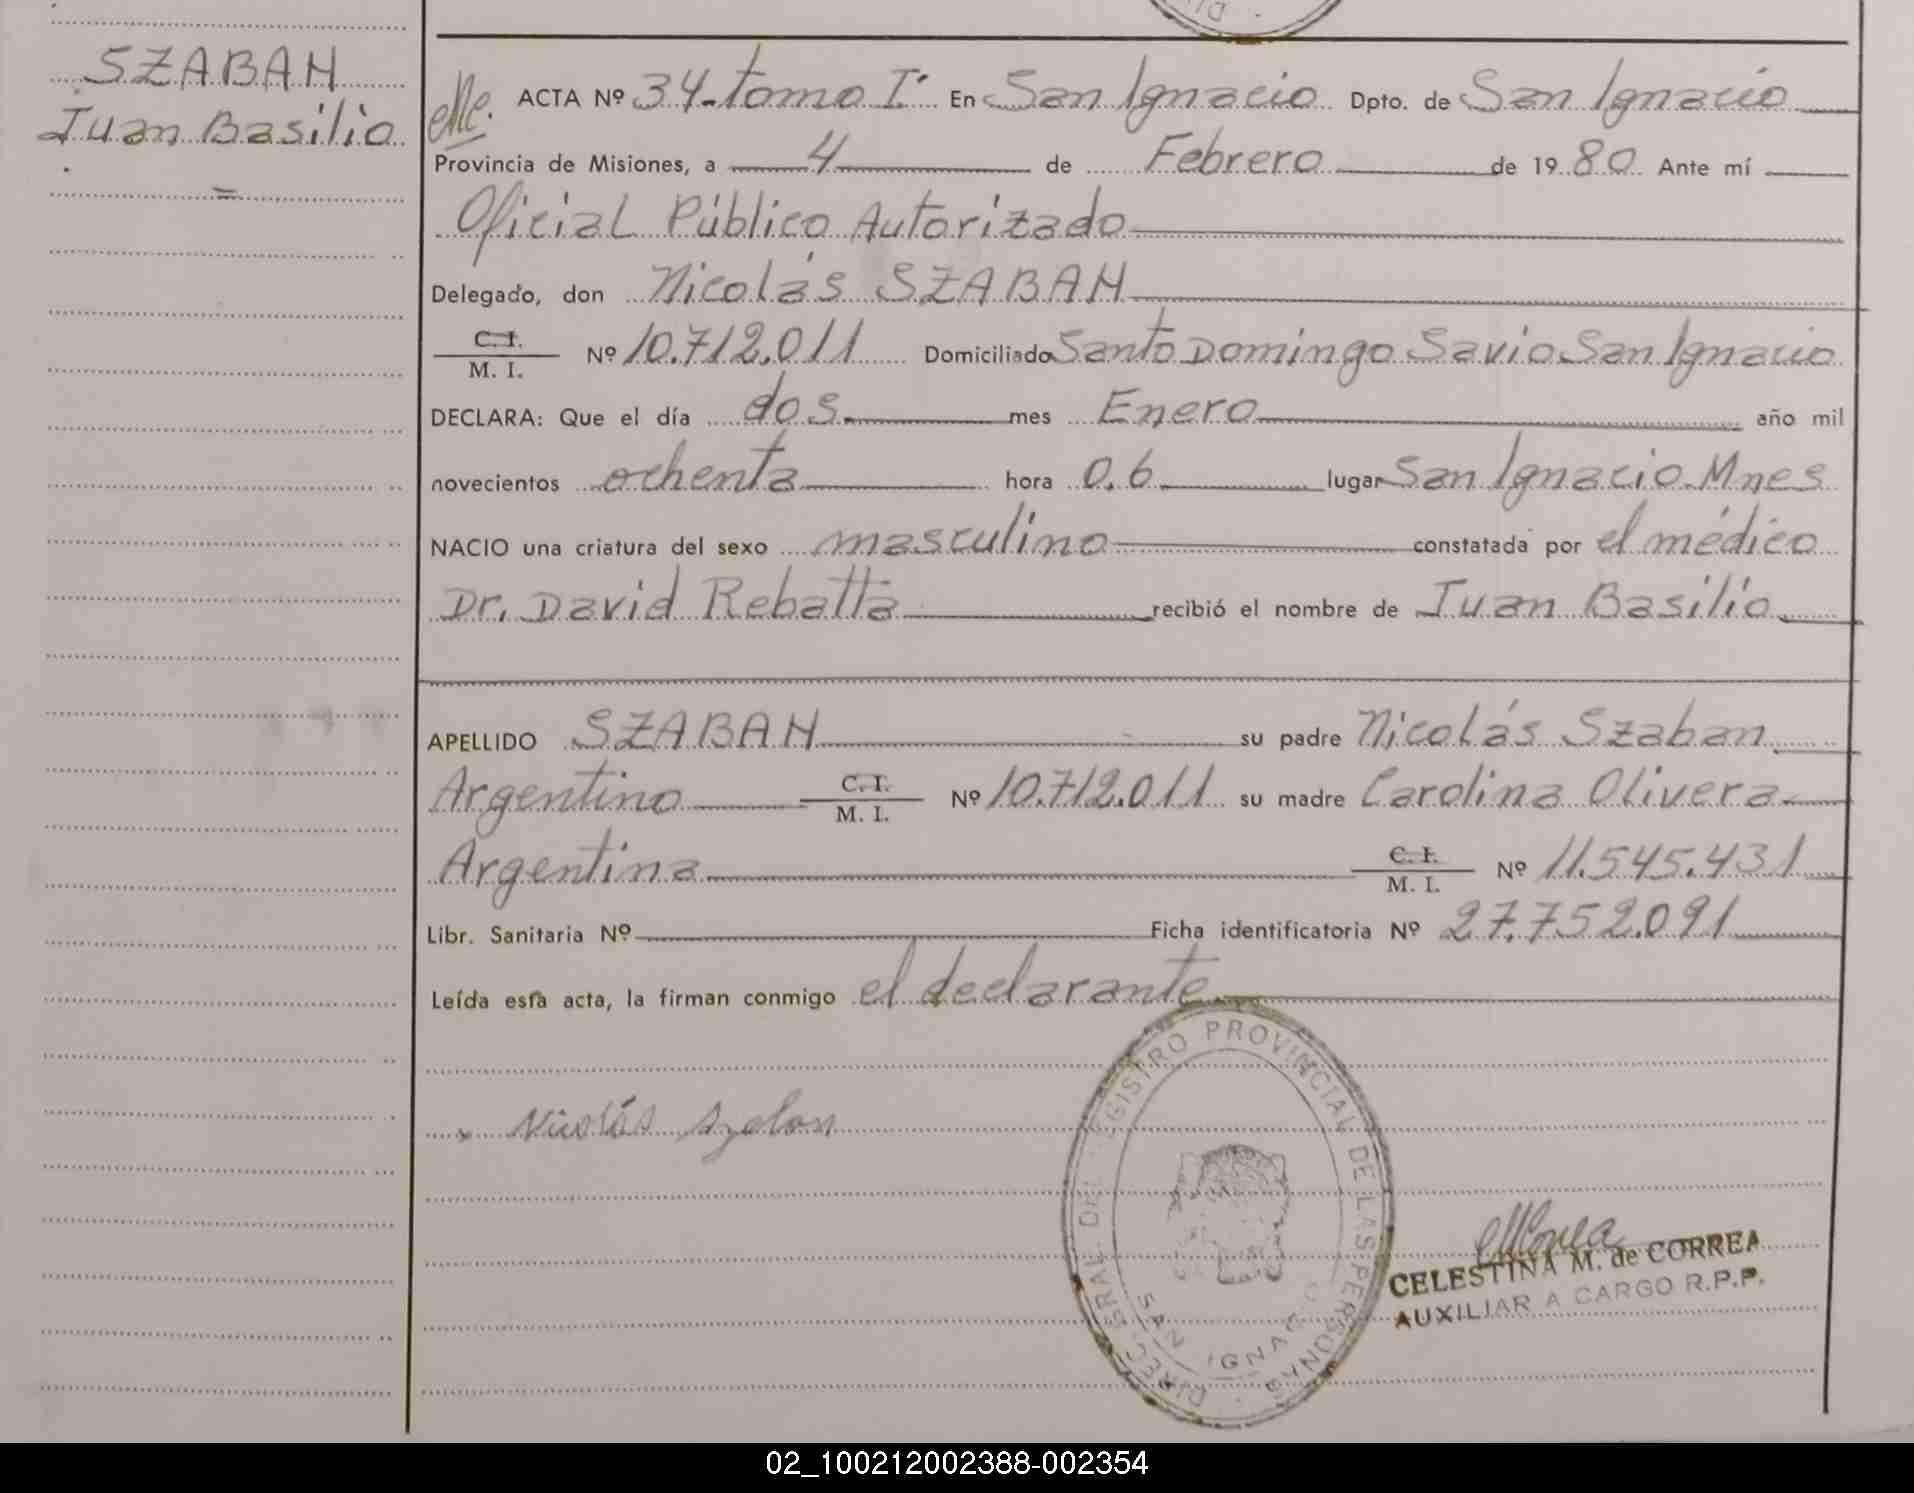 SZABAN
Juan Basilio
=
ACTA Nº 34-tomo I. En San Ignacio Dpto. de San Ignacio
Provincia de Misiones, a 4 de Febrero de 1980 Ante mí
Oficial Público Autorizado
Delegado, don Nicolás SZABAN
C. I.
M. I. Nº 10.712.011 Domiciliado Santo Domingo Savio San Ignacio
DECLARA: Que el día dos mes Enero año mil
novecientos ochenta hora 0.6 lugar San Ignacio Mnes
NACIO una criatura del sexo masculino constatada por el médico
Dr. David Rebatta recibió el nombre de Juan Basilio
APELLIDO SZABAN su padre Nicolás Szaban
Argentino C. I. M. I. Nº 10.712.011 su madre Carolina Olivera
Argentina C. I. M. I. Nº 11.545.431
Libr. Sanitaria Nº Ficha identificatoria Nº 27.752.091
Leída esta acta, la firman conmigo el declarante
Nicolás Szaban
REGISTRO PROVINCIAL DE LAS PERSONAS
SAN IGNACIO
CELESTINA M. de CORREA
AUXILIAR A CARGO R.P.P.
02_100212002388-002354